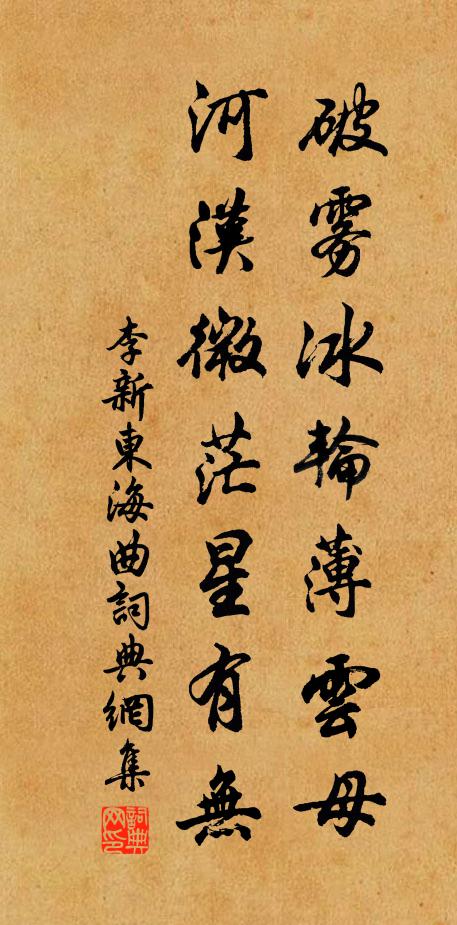 破雾冰輪薄雲母
河漢微茫星有無
李新東海曲詞典網集
詞典网印